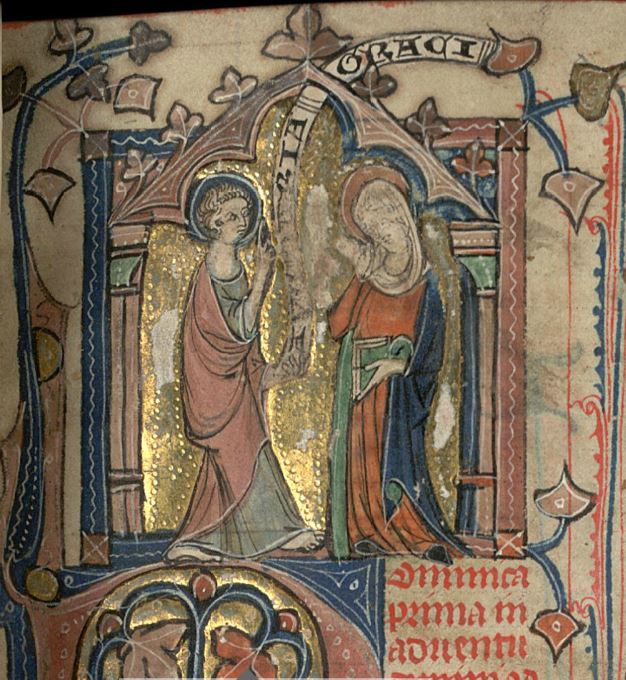 AVE MARIA
GRACI
Dominica
prima in
aduentu